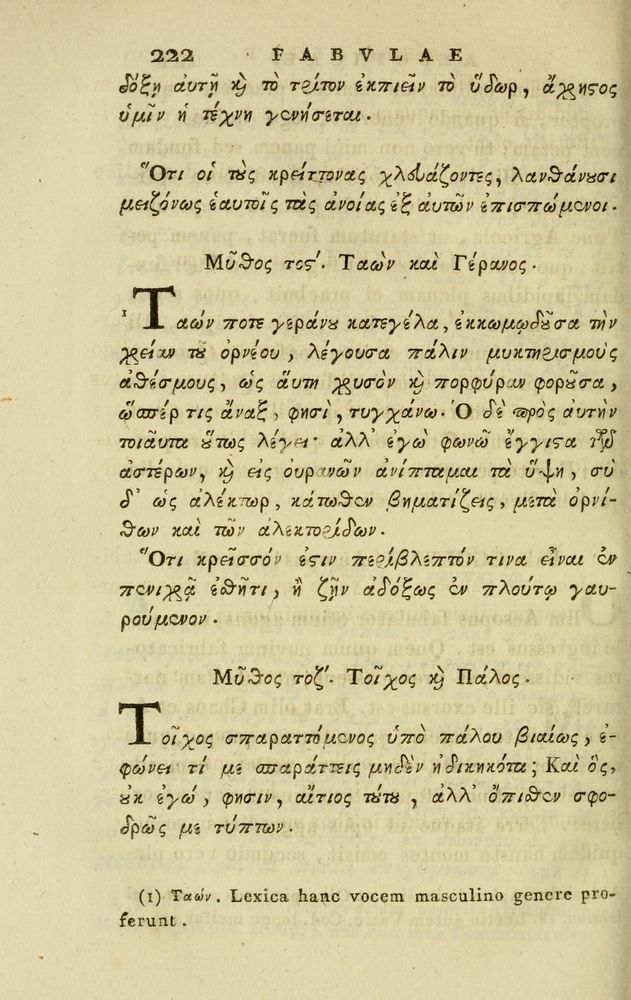 222 FABVLAE
δόξῃ αὐτῇ καὶ τὸ τρίτον ἐκπιεῖν τὸ ὕδωρ, ἄχρηστος
ὑμῖν ἡ τέχνη γενήσεται.
Ὅτι οἱ τοὺς κρείττονας χλευάζοντες, λανθάνουσι
μειζόνως ἑαυτοῖς τὰς ἀνοίας ἐξ αὐτῶν ἐπισπώμενοι.
Μῦθος τος΄. Ταὼν καὶ Γέρανος.
¹ Ταών ποτε γεράνου κατεγέλα, ἐκκωμῳδοῦσα τὴν
χρείαν τοῦ ὀρνέου, λέγουσα πάλιν μυκτηρισμοὺς
ἀθέσμους, ὡς αὕτη χρυσὸν καὶ πορφύραν φοροῦσα,
ὥσπέρ τις ἄναξ, φησὶ, τυγχάνω. Ὁ δὲ πρὸς αὐτὴν
τοιαῦτα οὕτως λέγει· ἀλλ᾽ ἐγὼ φωνῶ ἔγγιστα τῶν
ἀστέρων, καὶ εἰς οὐρανῶν ἀνίπταμαι τὰ ὕψη, σὺ
δ᾽ ὡς ἀλέκτωρ, κάτωθεν βηματίζεις, μετὰ ὀρνί-
θων καὶ τῶν ἀλεκτορίδων.
Ὅτι κρεῖσσόν ἐστιν περίβλεπτόν τινα εἶναι ἐν
πενιχρᾷ ἐσθῆτι, ἢ ζῇν ἀδόξως ἐν πλούτῳ γαυ-
ρούμενον.
Μῦθος τοζ΄. Τοῖχος καὶ Πάλος.
Τοῖχος σπαραττόμενος ὑπὸ πάλου βιαίως, ἐ-
φώνει τί με σπαράττεις μηδὲν ἠδικηκότα; Καὶ ὅς,
οὐκ ἐγώ, φησιν, αἴτιος τούτου, ἀλλ᾽ ὄπιθεν σφο-
δρῶς με τύπτων.
(1) Ταών. Lexica hanc vocem masculino genere pro-
ferunt.